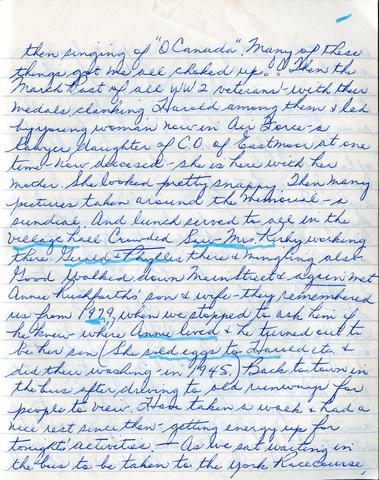 then singing of "O Canada". Many of these
things got me all choked up. Then the
March Past of all WW2 veterans - with their
medals clanking, Harold among them & led
by young woman now in Air Force - a
lawyer daughter of C.O. of Eastmoor at one
time now deceased - she is here with her
mother. She looked pretty snappy. Then many
pictures taken around the memorial - a
sundial. And lunch served to all in the
village hall. Crowded. Saw Mrs. Kirby working
there. Gerald & Phyllis there & mingling also.
Good. Walked down Main Street & again met
Annie Rushforth's son & wife - they remembered
us from 1979 when we stopped to ask him if
he knew where Annie lived & he turned out to
be her son (She sold eggs to Harold etc. &
did their washing - in 1945.) Back to town in
the bus after driving to old runways for
people to view. Have taken a walk & had a
nice rest since then - getting energy up for
tonight's activities. - As we sat waiting in
the bus to be taken to the York Racecourse,